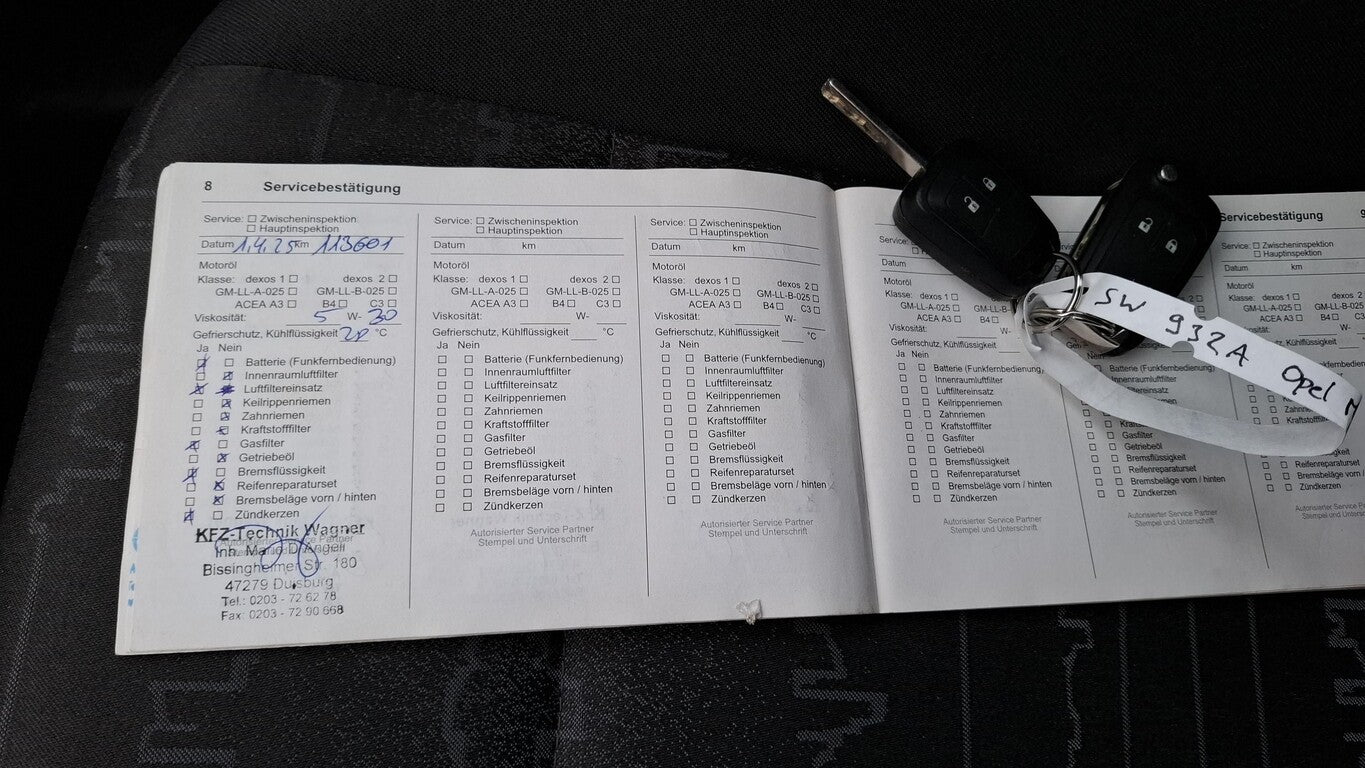 8 Servicebestätigung
Service: Zwischeninspektion
Hauptinspektion
Datum 1.4.25 km 113601
Motoröl
Klasse: dexos 1 dexos 2
GM-LL-A-025 GM-LL-B-025
ACEA A3 B4 C3
Viskosität: 5 W- 30
Gefrierschutz, Kühlflüssigkeit °C
Ja Nein
Batterie (Funkfernbedienung)
Innenraumluftfilter
Luftfiltereinsatz
Keilrippenriemen
Zahnriemen
Kraftstofffilter
Gasfilter
Getriebeöl
Bremsflüssigkeit
Reifenreparaturset
Bremsbeläge vorn / hinten
Zündkerzen
KFZ-Technik Wagner
Inh.
Bissingheimer Str. 180
47279 Duisburg
Tel.: 0203 - 72 62 78
Fax: 0203 - 72 90 668
Service: Zwischeninspektion
Hauptinspektion
Datum km
Motoröl
Klasse: dexos 1 dexos 2
GM-LL-A-025 GM-LL-B-025
ACEA A3 B4 C3
Viskosität: W-
Gefrierschutz, Kühlflüssigkeit °C
Ja Nein
Batterie (Funkfernbedienung)
Innenraumluftfilter
Luftfiltereinsatz
Keilrippenriemen
Zahnriemen
Kraftstofffilter
Gasfilter
Getriebeöl
Bremsflüssigkeit
Reifenreparaturset
Bremsbeläge vorn / hinten
Zündkerzen
Autorisierter Service Partner
Stempel und Unterschrift
Service: Zwischeninspektion
Hauptinspektion
Datum km
Motoröl
Klasse: dexos 1 dexos 2
GM-LL-A-025 GM-LL-B-025
ACEA A3 B4 C3
Viskosität: W-
Gefrierschutz, Kühlflüssigkeit °C
Ja Nein
Batterie (Funkfernbedienung)
Innenraumluftfilter
Luftfiltereinsatz
Keilrippenriemen
Zahnriemen
Kraftstofffilter
Gasfilter
Getriebeöl
Bremsflüssigkeit
Reifenreparaturset
Bremsbeläge vorn / hinten
Zündkerzen
Autorisierter Service Partner
Stempel und Unterschrift
Servicebestätigung
Service:
Datum
Motoröl
Klasse: dexos 1
GM-LL-A-025
ACEA A3
Viskosität:
Gefrierschutz, Kühlflüssigkeit
Ja Nein
Batterie (Funkfernbedienung)
Innenraumluftfilter
Luftfiltereinsatz
Keilrippenriemen
Zahnriemen
Kraftstofffilter
Gasfilter
Getriebeöl
Bremsflüssigkeit
Reifenreparaturset
Bremsbeläge vorn / hinten
Zündkerzen
Autorisierter Service Partner
Stempel und Unterschrift
Gasfilter
Getriebeöl
Bremsflüssigkeit
Reifenreparaturset
Bremsbeläge vorn / hinten
Zündkerzen
Autorisierter Service Partner
Stempel und Unterschrift
Service: Zwischeninspektion
Hauptinspektion
Datum km
Motoröl
SW 932A Opel